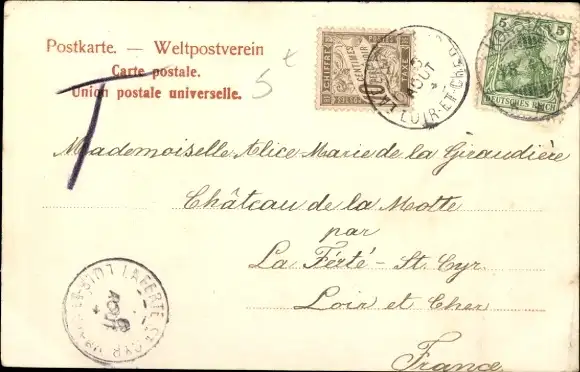 Postkarte. — Weltpostverein
Carte postale.
Union postale universelle.
T
5
CHIFFRE TAXE
10
CENTIMES
A PERCEVOIR
POSTES
AOUT
LOIR-ET-CHER
5 5
DEUTSCHES REICH
Mademoiselle Alice-Marie de la Giraudière
Château de la Motte
par
La Ferté-St. Cyr.
Loir et Cher
France
LAFERTÉ ST CYR
6
AOUT